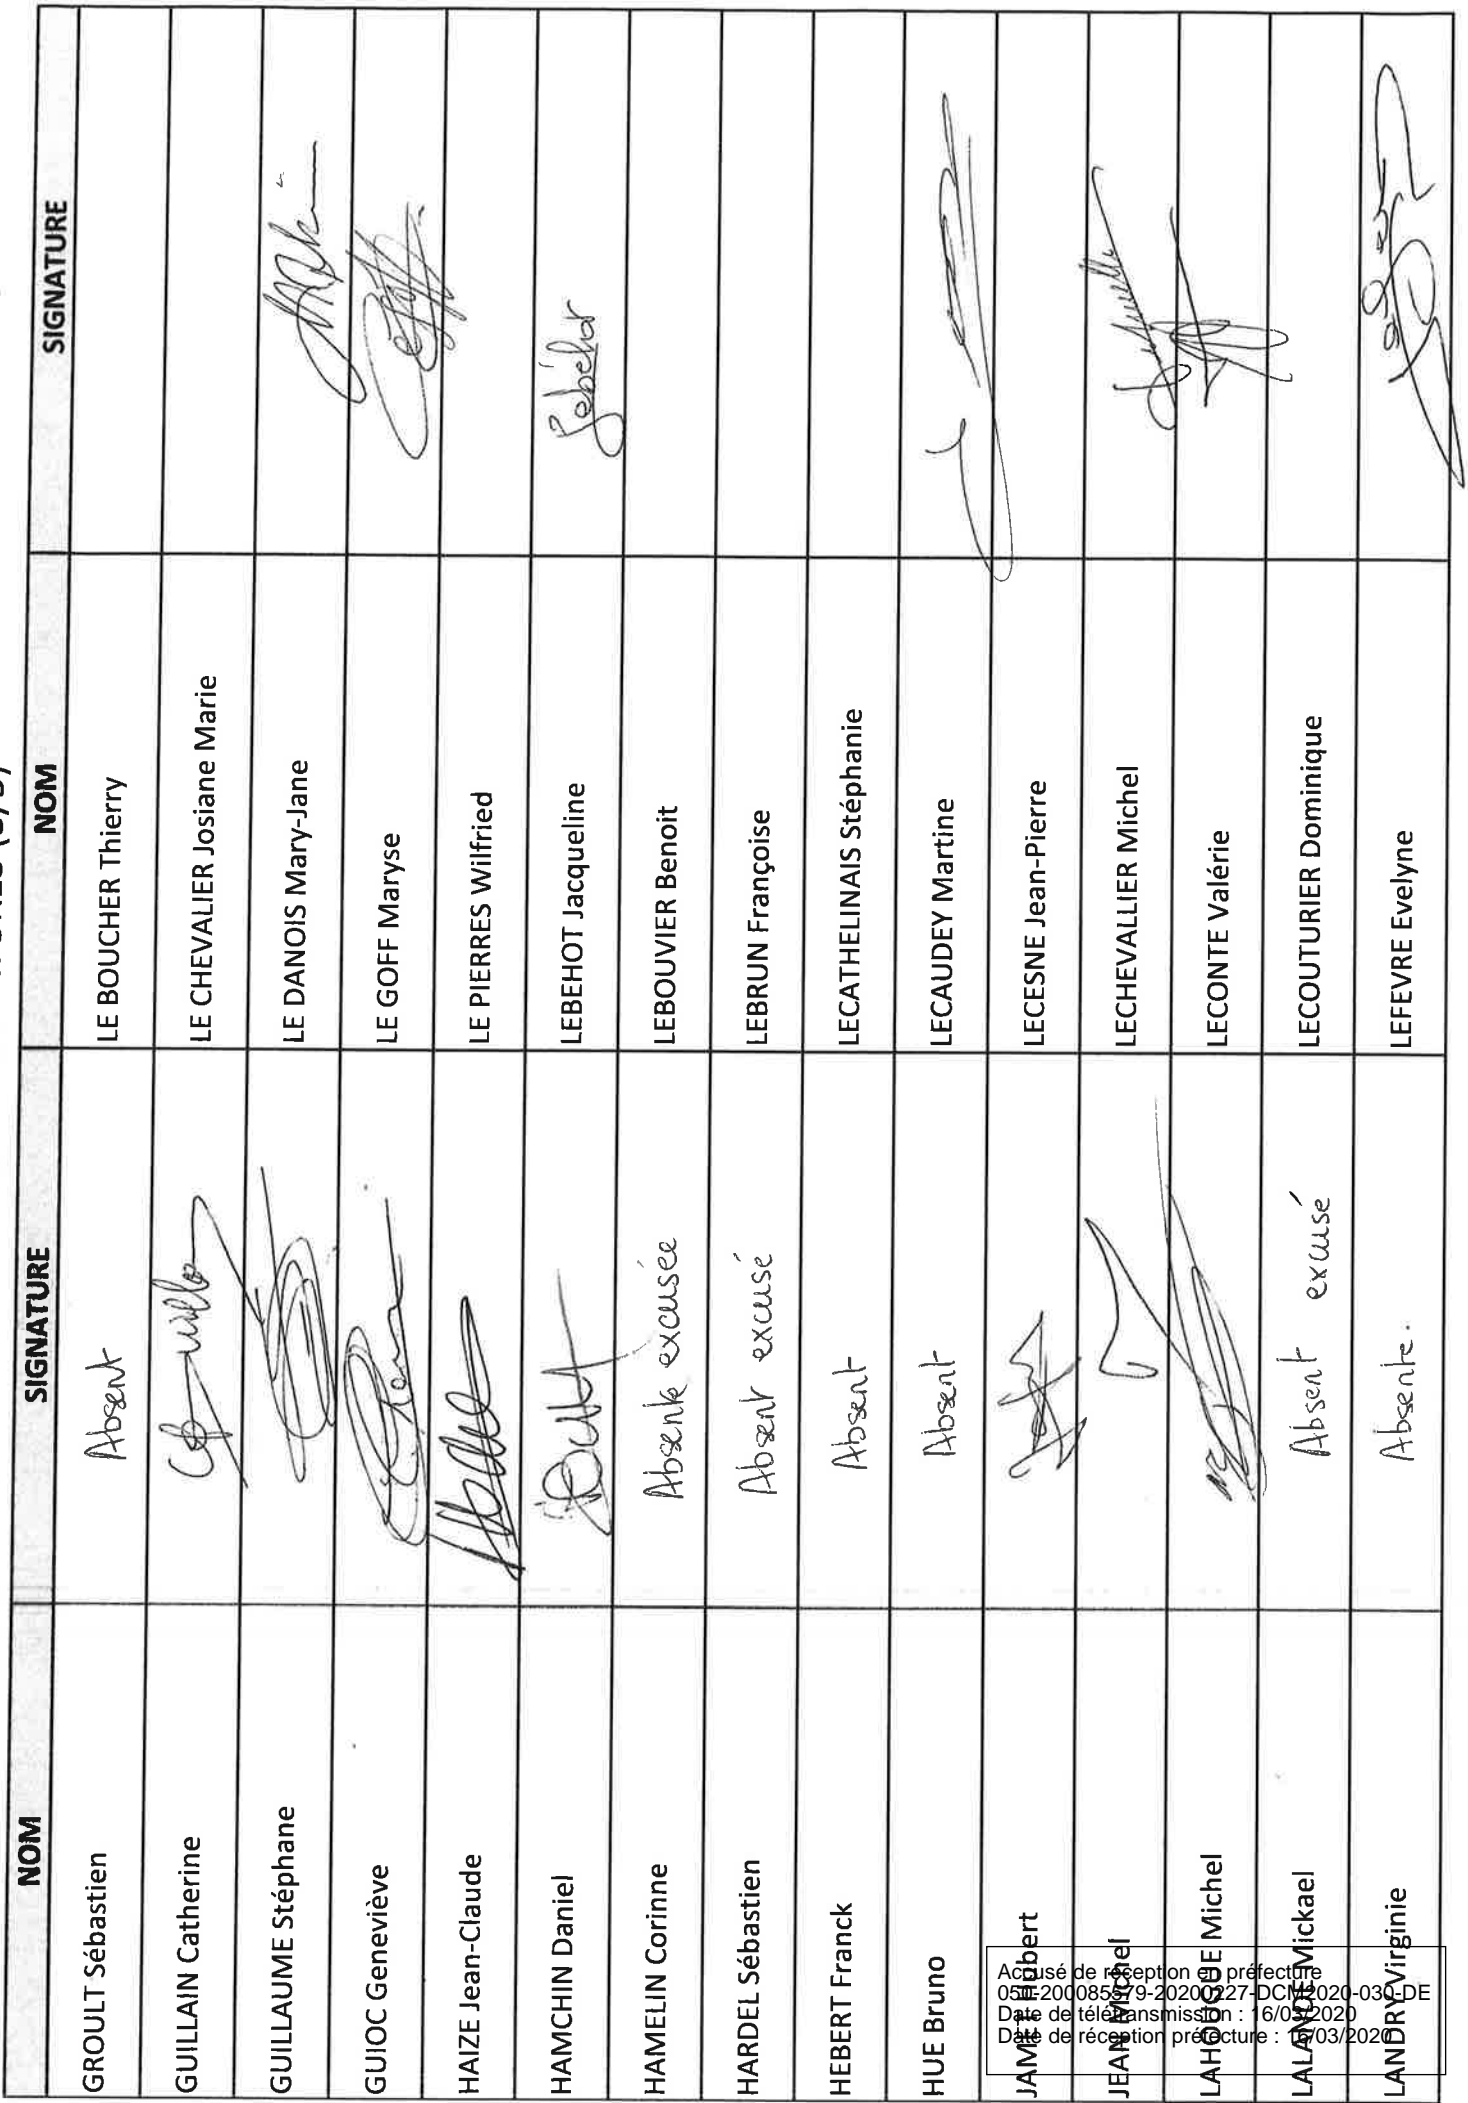 NOM SIGNATURE NOM SIGNATURE
GROULT Sébastien Absent LE BOUCHER Thierry
GUILLAIN Catherine LE CHEVALIER Josiane Marie
GUILLAUME Stéphane LE DANOIS Mary-Jane
GUIOC Geneviève LE GOFF Maryse
HAIZE Jean-Claude LE PIERRES Wilfried
HAMCHIN Daniel LEBEHOT Jacqueline
HAMELIN Corinne Absente excusée LEBOUVIER Benoit
HARDEL Sébastien Absent excusé LEBRUN Françoise
HEBERT Franck Absent LECATHELINAIS Stéphanie
HUE Bruno Absent LECAUDEY Martine
JAMET Hubert LECESNE Jean-Pierre
JEAN Michel LECHEVALLIER Michel
LAHOUGUE Michel LECONTE Valérie
LALANDE Mickael Absent excusé LECOUTURIER Dominique
LANDRY Virginie Absente. LEFEVRE Evelyne
Accusé de réception en préfecture
050-200085579-20200227-DCM2020-030-DE
Date de télétransmission : 16/03/2020
Date de réception préfecture : 16/03/2020